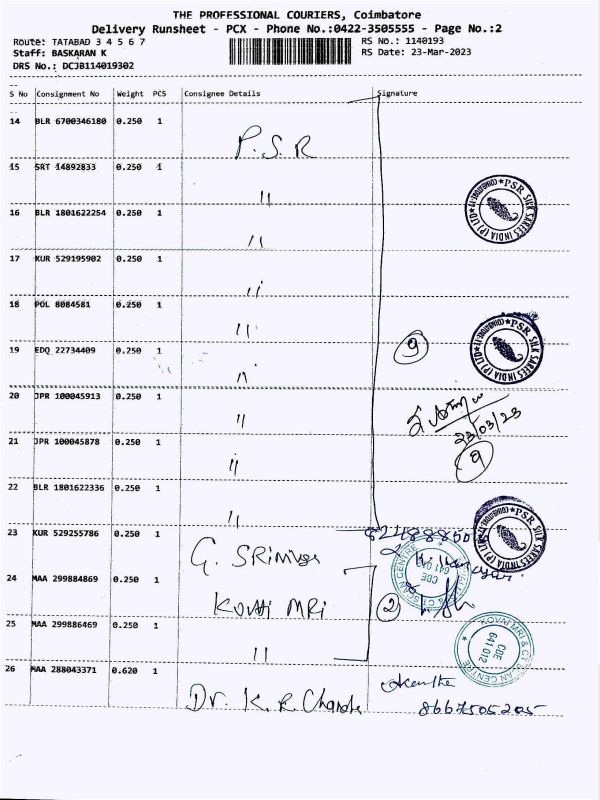 THE PROFESSIONAL COURIERS, Coimbatore
Delivery Runsheet - PCX - Phone No.:0422-3505555 - Page No.:2
Route: TATABAD 3 4 5 6 7
RS No.: 1140193
Staff: BASKARAN K
RS Date: 23-Mar-2023
DRS No.: DCJB114019302
S No Consignment No Weight PCS Consignee Details Signature
14 BLR 6700346180 0.250 1 P.S.R
15 SRT 14892833 0.250 1 "
16 BLR 1801622254 0.250 1 "
17 KUR 529195902 0.250 1 "
18 POL 8084581 0.250 1 "
19 EDQ 22734409 0.250 1 "
20 JPR 100045913 0.250 1 "
21 JPR 100045878 0.250 1 "
22 BLR 1801622336 0.250 1 "
23 KUR 529255786 0.250 1
24 MAA 299884869 0.250 1 Kovai MRI
25 MAA 299886469 0.250 1 "
26 MAA 288043371 0.620 1 Dr. K. R. Chandr
PSR SILK SAREES INDIA (P) LTD
PSR SILK SAREES INDIA (P) LTD
9
23/03/23
9
PSR SILK SAREES INDIA (P) LTD
2
KOVAI MRI & CT SCAN CENTRE
CBE
641 012
8667505205